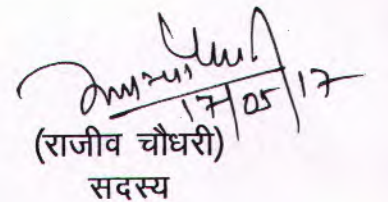 17/05/17
(राजीव चौधरी)
सदस्य